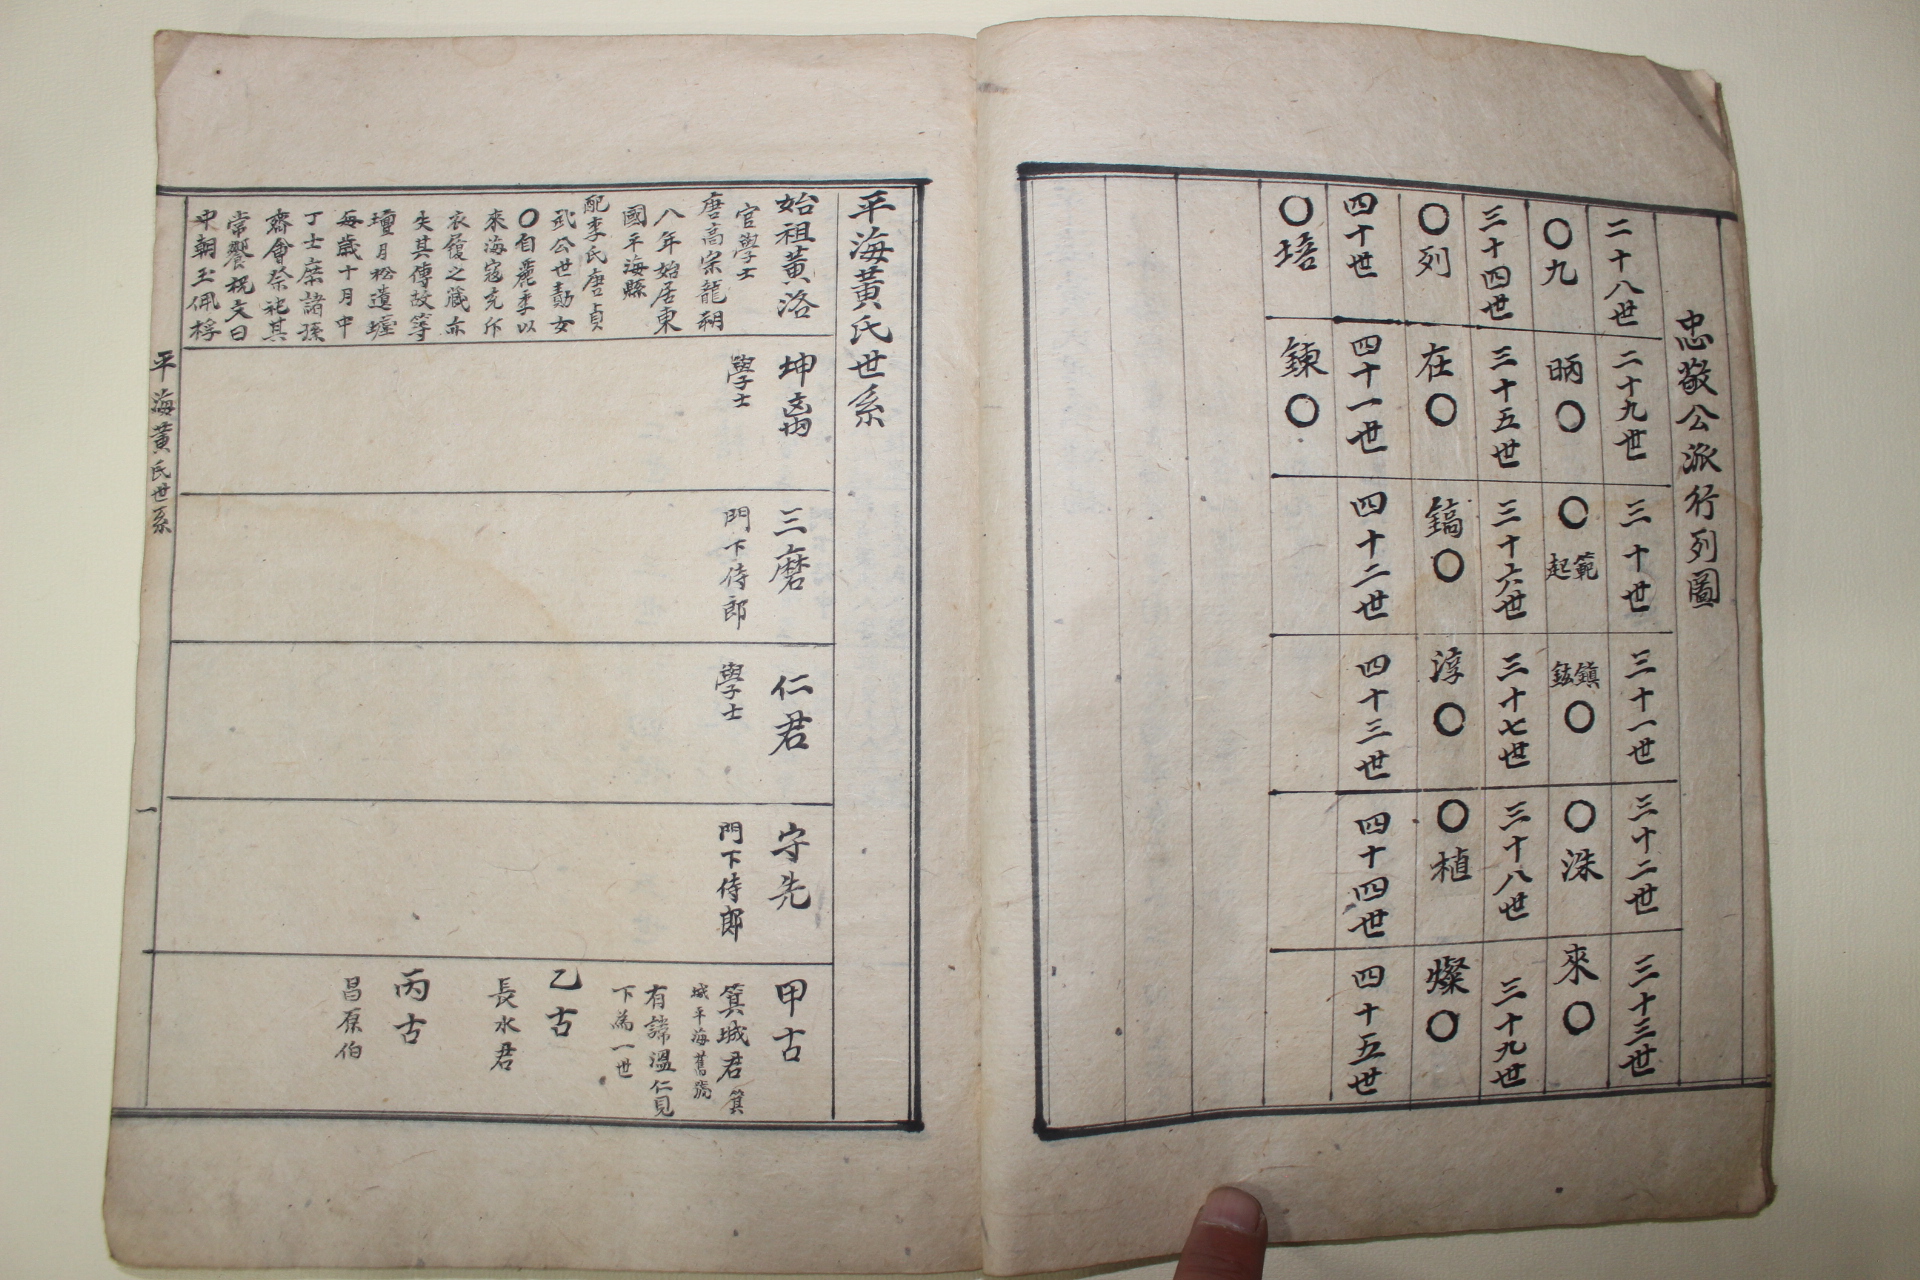 忠敬公派行列圖
二十八世
二十九世
三十世
三十一世
三十二世
三十三世
〇九
昞〇
〇範起
鎮鉉〇
〇洙
來〇
三十四世
三十五世
三十六世
三十七世
三十八世
三十九世
〇列
在〇
鎬〇
淳〇
〇植
燦〇
四十世
四十一世
四十二世
四十三世
四十四世
四十五世
〇培
鍊〇
平海黃氏世系
始祖黃洛
官學士
唐高宗龍朔
八年始居東
國平海縣
配李氏唐貞
武公世勣女
〇自麗季以
來海寇充斥
衣履之藏亦
失其傳故等
壇月松遺墟
每歲十月中
丁士庶諸孫
齊會祭祀其
常饗祝文曰
中朝玉佩桴
坤
學士
三磨
門下侍郎
仁君
學士
守先
門下侍郎
甲古
箕城君箕
城平海舊號
有諱溫仁見
下為一世
乙古
長水君
丙古
昌原伯
平海黃氏世系
一